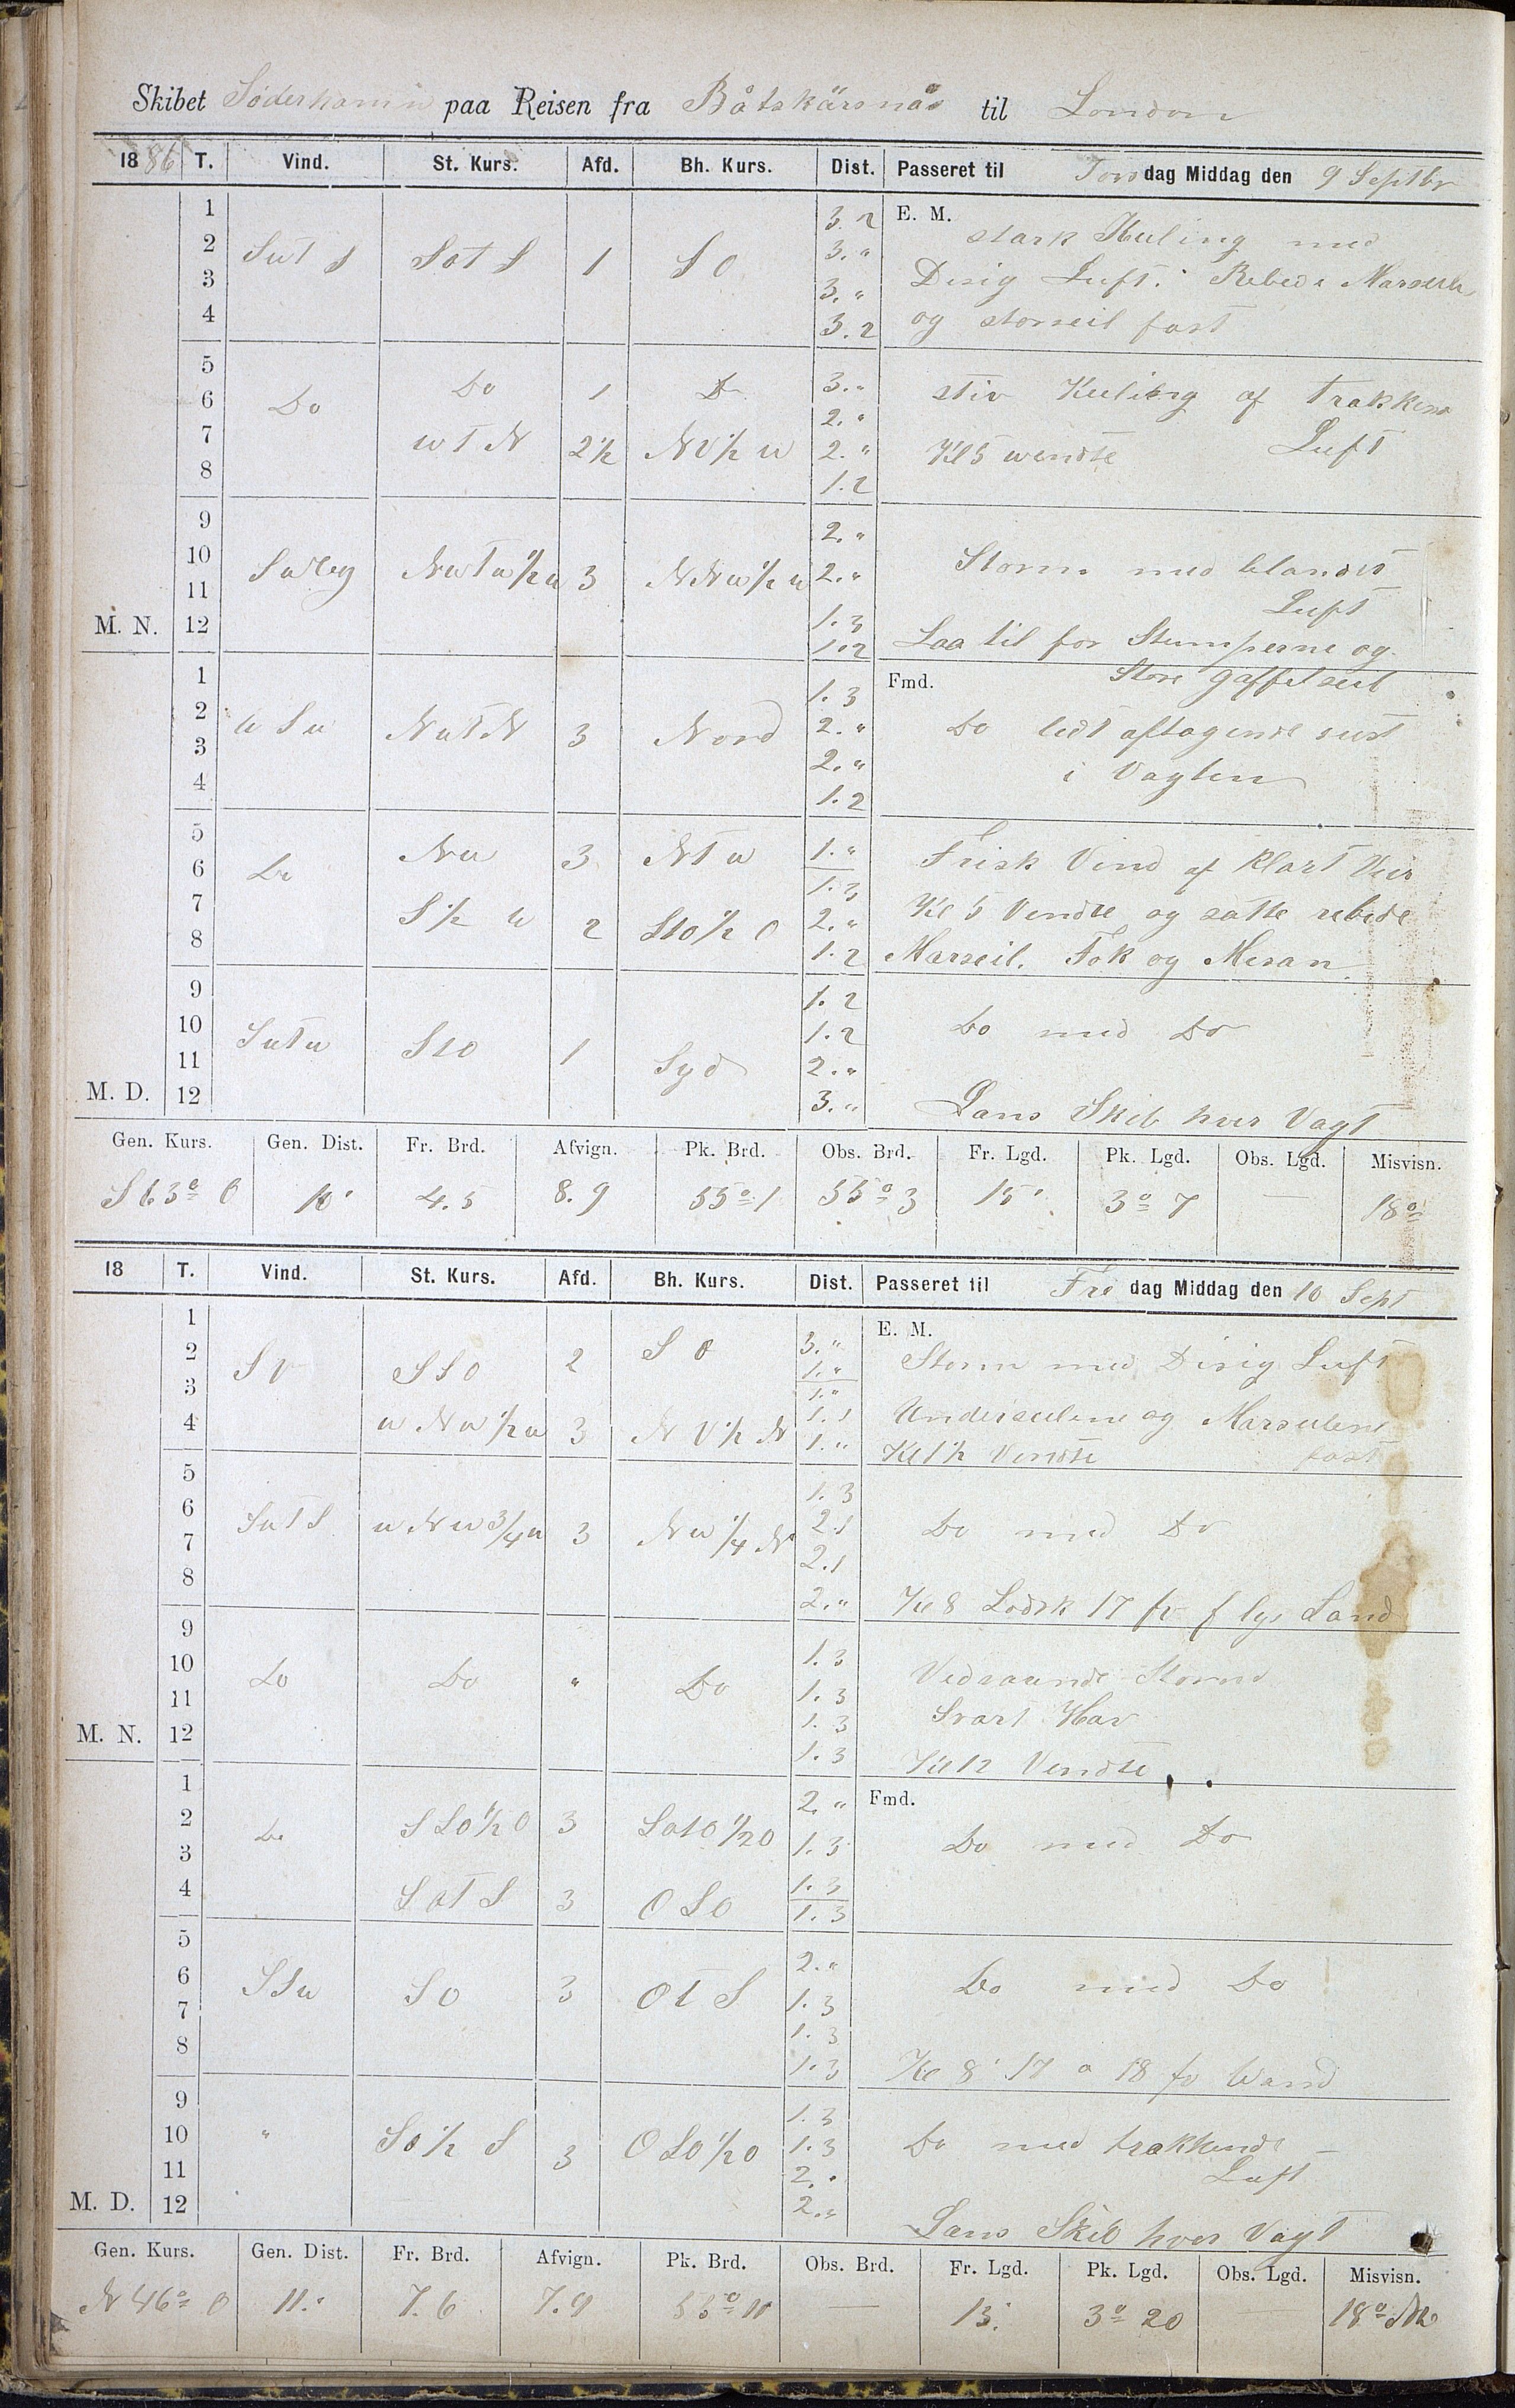 Skibet Söderhamn paa Reisen fra Båtskärsnäs til London
1886 T. Vind. St. Kurs. Afd. Bh. Kurs. Dist. Passeret til Torsdag Middag den 9 Septbr
1 3.2 E. M.
2 SuT S SoT S 1 SO 3.″ stark Kuling med
3 3.″ Disig Luft. Rebede Marseil
4 3.2 og storseil fast
5 Do 1 Do 3.″ stiv Kuling af trakkende
6 Do 2.″ Luft
7 uTN 2½ NV½u 2.″ Kl 5 wendte
8 1.2
9 2.″
10 NuTu½u 3 NNu½u 2.″ Storm med blandet
11 1.3 Luft
M. N. 12 1.2 Laa til for Stumperne og
Store gaffelseil
1 1.3 Fmd.
2 u S u NuTN 3 Nord 2.″ Do lidt aftagende sist
3 2.″ i Vagten
4 1.2
5 Nu 3 NTu 1.″ Frisk Vind af Klart Veir
6 Do 1.3
7 S½ u 2 2.″ Kl 5 Vendte og satte rebede
8 1.2 Marseil. Fok og Mesan
9 1.2
10 SuTu SSO 1 Syd 1.2 Do med Do
11 2.″
M. D. 12 3.″ Lans Skib hver Vagt
Gen. Kurs. Gen. Dist. Fr. Brd. Afvign. Pk. Brd. Obs. Brd. Fr. Lgd. Pk. Lgd. Obs. Lgd. Misvisn.
S 63° O 10′ 4.5 8.9 55° 1 55° 3 15′ 3° 7 — 18°
18 T. Vind. St. Kurs. Afd. Bh. Kurs. Dist. Passeret til Fredag Middag den 10 Sept
1 E. M.
2 SV SSO 2 SO 3.″ Storm med Disig Luft
3 1.″
1.″
4 u Nu½u 3 NV½N 1.1 Underseilene og Marseilene
1.″ Kl 1½ Vendte fast
5 1.3
6 SuTS u Nu¾u 3 Nu¼N 2.1 Do med Do
7 2.1
8 2.″ Kl 8 Lodsk 17 fv Land
9
10 Do Do ″ Do 1.3 Vedvarende Storm
11 1.3 Svart Hav
M. N. 12 1.3
1.3 Kl 12 Vendte
1 2.″ Fmd.
2 Do SSO½O 3 SOTO½O 1.3 Do med Do
3 1.3
4 SOTS 3 OSO 1.3
5 2.″
6 SSu SO 3 OTS 1.3 Do med Do
7 1.3
8 1.3 Kl 8 17 a 18 fv Wand
9 1.3
10 ″ SO½S 3 OSO½O 1.3 Do med trakkende
11 2.″ Luft
M. D. 12 2.″ Lans Skib hver Vagt
Gen. Kurs. Gen. Dist. Fr. Brd. Afvign. Pk. Brd. Obs. Brd. Fr. Lgd. Pk. Lgd. Obs. Lgd. Misvisn.
N 46° O 11.″ 7.6 7.9 55° 11 — 13′ 3° 20 — 18°